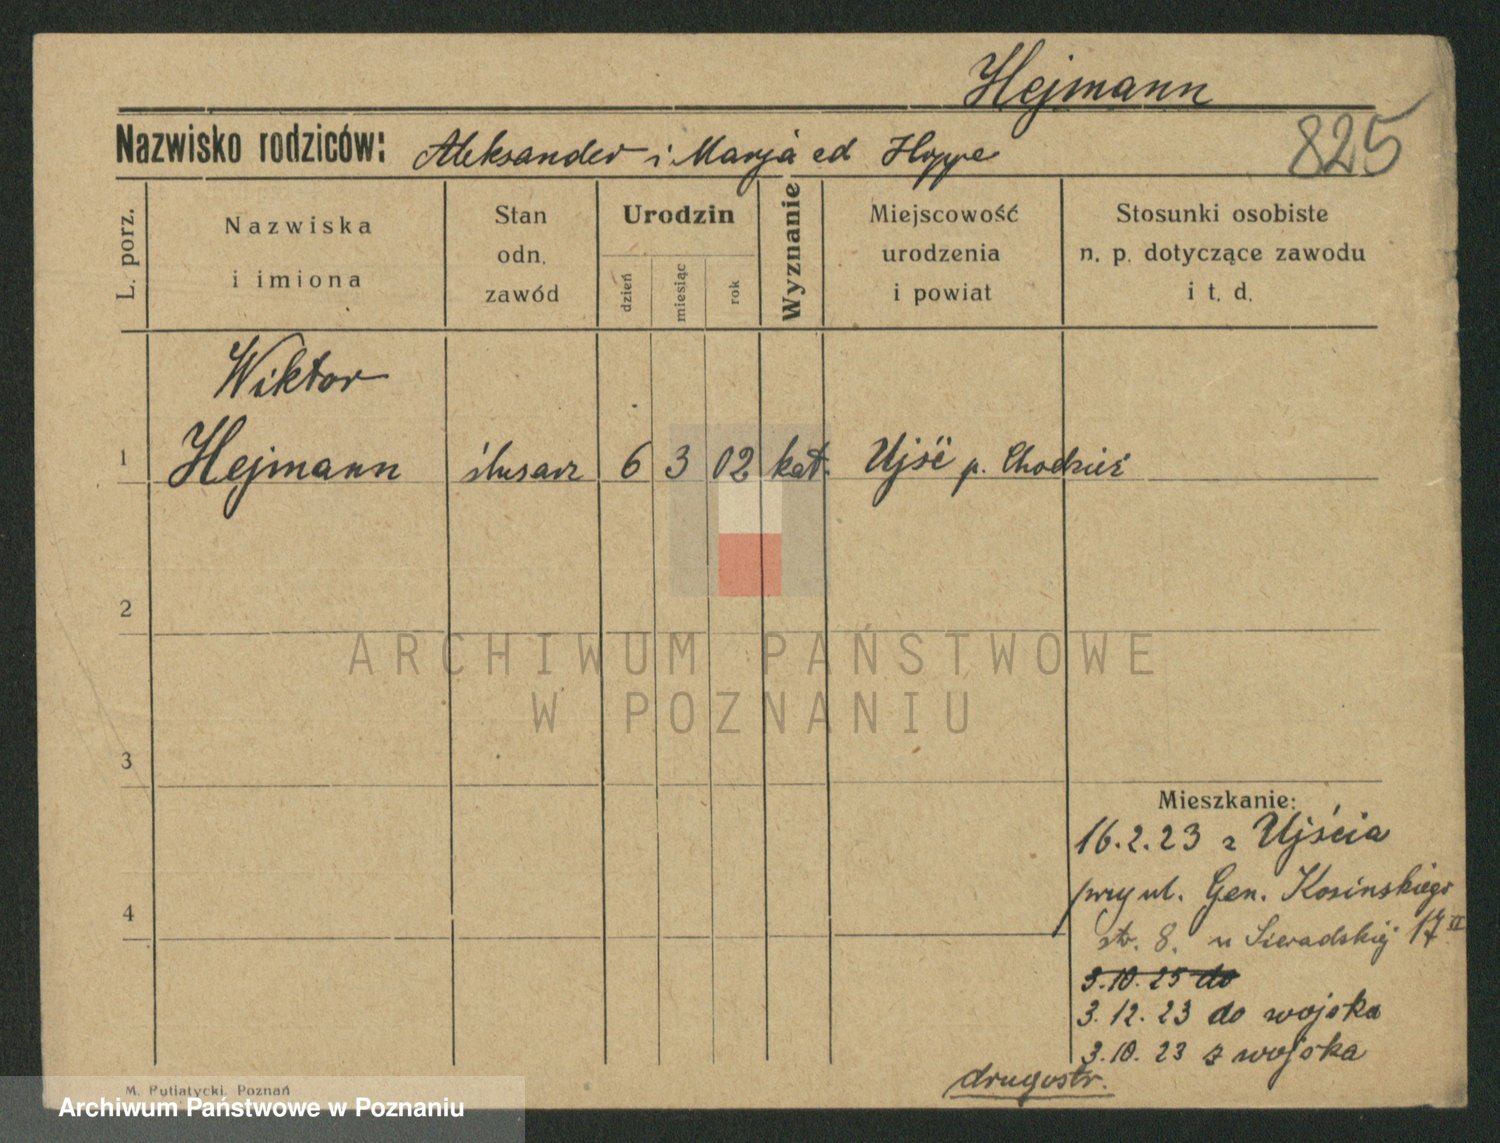 Hejmann
825
Nazwisko rodziców: Aleksander i Marja ed Hoppe
L. porz.
Nazwiska
i imiona
Stan
odn.
zawód
Urodzin
dzień
miesiąc
rok
Wyznanie
Miejscowość
urodzenia
i powiat
Stosunki osobiste
n. p. dotyczące zawodu
i t. d.
Wiktor
1 Hejmann ślusarz 6 3 02 kat. Ujść p. Chodzież
2
ARCHIWUM PAŃSTWOWE
W POZNANIU
3
Mieszkanie:
16.2.23 z Ujścia
przy ul. Gen. Kosinskiego 17 II
str. 8. u Sieradzkiej
4
3.10.25 do
3.12.23 do wojska
3.10.23 z wojska
drugostr.
M. Putiatycki, Poznań
Archiwum Państwowe w Poznaniu